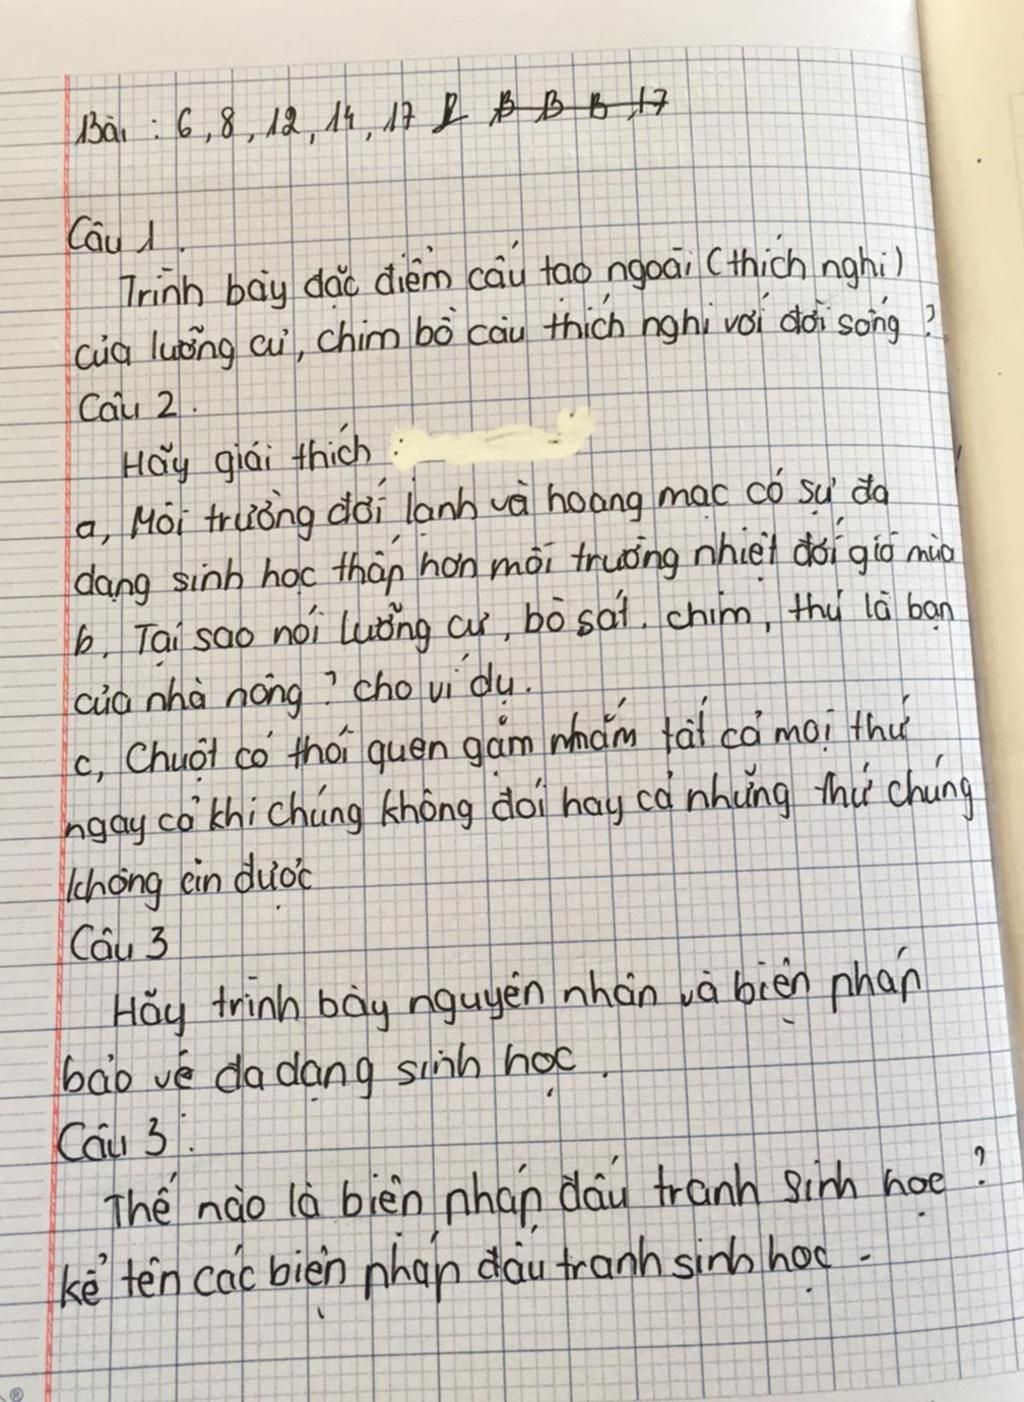 Bài : 6, 8, 12, 14, 17 B B B, 17
Câu 1.
Trình bày đặc điểm cấu tạo ngoài (thích nghi)
của lưỡng cư, chim bồ câu thích nghi với đời sống ?
Câu 2.
Hãy giải thích :
a, Môi trường đới lạnh và hoang mạc có sự đa
dạng sinh học thấp hơn môi trường nhiệt đới gió mùa
b, Tại sao nói lưỡng cư, bò sát. chim, thú là bạn
của nhà nông ? cho ví dụ.
c, Chuột có thói quen gặm nhấm tất cả mọi thứ
ngay cả khi chúng không đói hay cả những thứ chúng
không ăn được
Câu 3
Hãy trình bày nguyên nhân và biện pháp
bảo vệ đa dạng sinh học.
Câu 3 :
Thế nào là biện pháp đấu tranh sinh học ?
kể tên các biện pháp đấu tranh sinh học -